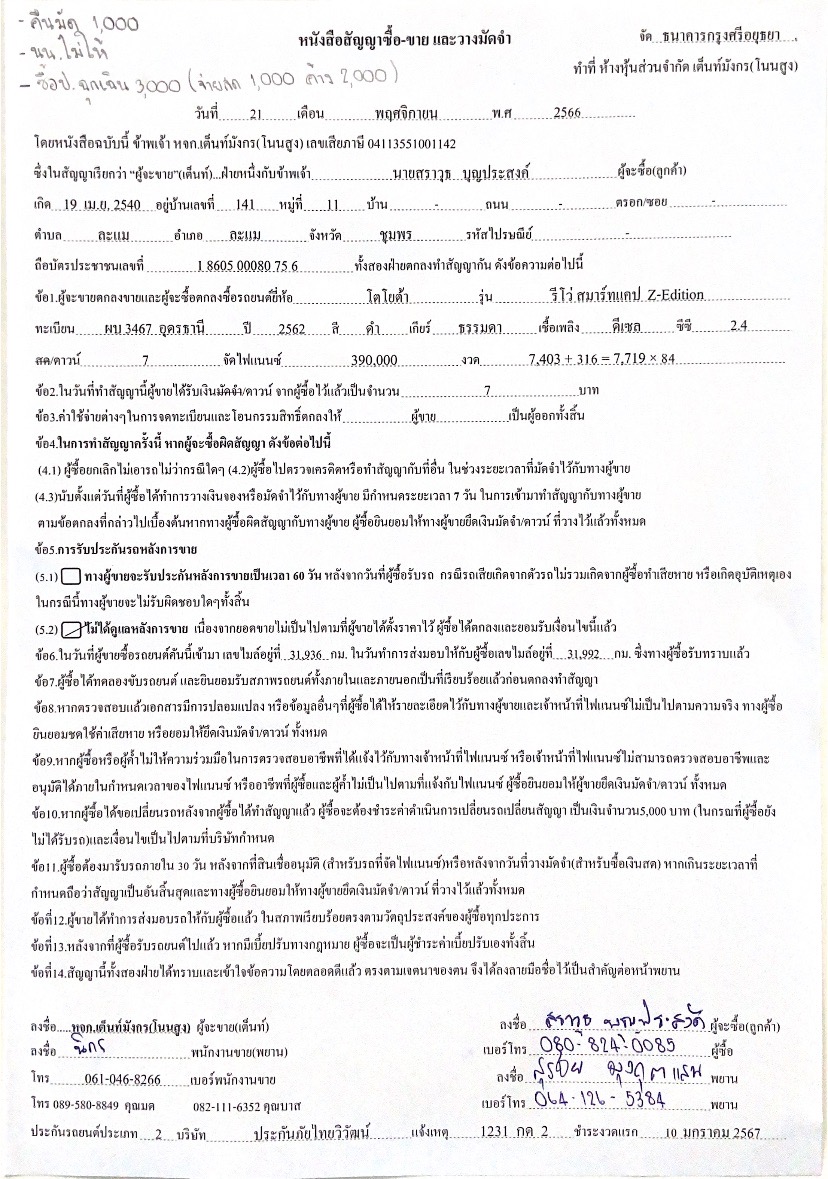 - คืนมัด 1,000
- นน.ไม่ให้
- ซื้อป.ฉุกเฉิน 3,000 (จ่ายสด 1,000 ค้าง 2,000)
หนังสือสัญญาซื้อ-ขาย และวางมัดจำ
จัด ธนาคารกรุงศรีอยุธยา
ทำที่ ห้างหุ้นส่วนจำกัด เต็นท์มังกร(โนนสูง)
วันที่ 21 เดือน พฤศจิกายน พ.ศ 2566
โดยหนังสือฉบับนี้ ข้าพเจ้า หจก.เต็นท์มังกร(โนนสูง) เลขเสียภาษี 04113551001142
ซึ่งในสัญญาเรียกว่า "ผู้จะขาย"(เต็นท์)...ฝ่ายหนึ่งกับข้าพเจ้า นายสราวุธ บุญประสงค์ ผู้จะซื้อ(ลูกค้า)
เกิด 19 เม.ย. 2540 อยู่บ้านเลขที่ 141 หมู่ที่ 11 บ้าน - ถนน - ตรอก/ซอย -
ตำบล ละแม อำเภอ ละแม จังหวัด ชุมพร รหัสไปรษณีย์ -
ถือบัตรประชาชนเลขที่ 1 8605 00080 75 6 ทั้งสองฝ่ายตกลงทำสัญญากัน ดังข้อความต่อไปนี้
ข้อ1.ผู้จะขายตกลงขายและผู้จะซื้อตกลงซื้อรถยนต์ยี่ห้อ โตโยต้า รุ่น รีโว่ สมาร์ทแคป Z-Edition
ทะเบียน ผบ 3467 อุดรธานี ปี 2562 สี ดำ เกียร์ ธรรมดา เชื้อเพลิง ดีเซล ซีซี 2.4
สด/ดาวน์ 7 จัดไฟแนนซ์ 390,000 งวด 7,403 + 316 = 7,719 × 84
ข้อ2.ในวันที่ทำสัญญานี้ผู้ขายได้รับเงินมัดจำ/ดาวน์ จากผู้ซื้อไว้แล้วเป็นจำนวน 7 บาท
ข้อ3.ค่าใช้จ่ายต่างๆในการจดทะเบียนและโอนกรรมสิทธิ์ตกลงให้ ผู้ขาย เป็นผู้ออกทั้งสิ้น
ข้อ4.ในการทำสัญญาครั้งนี้ หากผู้จะซื้อผิดสัญญา ดังข้อต่อไปนี้
(4.1) ผู้ซื้อยกเลิกไม่เอารถไม่ว่ากรณีใดๆ (4.2)ผู้ซื้อไปตรวจเครดิตหรือทำสัญญากับที่อื่น ในช่วงระยะเวลาที่มัดจำไว้กับทางผู้ขาย
(4.3)นับตั้งแต่วันที่ผู้ซื้อได้ทำการวางเงินจองหรือมัดจำไว้กับทางผู้ขาย มีกำหนดระยะเวลา 7 วัน ในการเข้ามาทำสัญญากับทางผู้ขาย
ตามข้อตกลงที่กล่าวไปเบื้องต้นหากทางผู้ซื้อผิดสัญญากับทางผู้ขาย ผู้ซื้อยินยอมให้ทางผู้ขายยึดเงินมัดจำ/ดาวน์ ที่วางไว้แล้วทั้งหมด
ข้อ5.การรับประกันรถหลังการขาย
(5.1) ทางผู้ขายจะรับประกันหลังการขายเป็นเวลา 60 วัน หลังจากวันที่ผู้ซื้อรับรถ กรณีรถเสียเกิดจากตัวรถไม่รวมเกิดจากผู้ซื้อทำเสียหาย หรือเกิดอุบัติเหตุเอง
ในกรณีนี้ทางผู้ขายจะไม่รับผิดชอบใดๆทั้งสิ้น
(5.2) ไม่ได้ดูแลหลังการขาย เนื่องจากยอดขายไม่เป็นไปตามที่ผู้ขายได้ตั้งราคาไว้ ผู้ซื้อได้ตกลงและยอมรับเงื่อนไขนี้แล้ว
ข้อ6.ในวันที่ผู้ขายซื้อรถยนต์คันนี้เข้ามา เลขไมล์อยู่ที่ 31,936 กม. ในวันทำการส่งมอบให้กับผู้ซื้อเลขไมล์อยู่ที่ 31,992 กม. ซึ่งทางผู้ซื้อรับทราบแล้ว
ข้อ7.ผู้ซื้อได้ทดลองขับรถยนต์ และยินยอมรับสภาพรถยนต์ทั้งภายในและภายนอกเป็นที่เรียบร้อยแล้วก่อนตกลงทำสัญญา
ข้อ8.หากตรวจสอบแล้วเอกสารมีการปลอมแปลง หรือข้อมูลอื่นๆที่ผู้ซื้อได้ให้รายละเอียดไว้กับทางผู้ขายและเจ้าหน้าที่ไฟแนนซ์ไม่เป็นไปตามความจริง ทางผู้ซื้อ
ยินยอมชดใช้ค่าเสียหาย หรือยอมให้ยึดเงินมัดจำ/ดาวน์ ทั้งหมด
ข้อ9.หากผู้ซื้อหรือผู้ค้ำไม่ให้ความร่วมมือในการตรวจสอบอาชีพที่ได้แจ้งไว้กับทางเจ้าหน้าที่ไฟแนนซ์ หรือเจ้าหน้าที่ไฟแนนซ์ไม่สามารถตรวจสอบอาชีพและ
อนุมัติได้ภายในกำหนดเวลาของไฟแนนซ์ หรืออาชีพที่ผู้ซื้อและผู้ค้ำไม่เป็นไปตามที่แจ้งกับไฟแนนซ์ ผู้ซื้อยินยอมให้ผู้ขายยึดเงินมัดจำ/ดาวน์ ทั้งหมด
ข้อ10.หากผู้ซื้อได้ขอเปลี่ยนรถหลังจากผู้ซื้อได้ทำสัญญาแล้ว ผู้ซื้อจะต้องชำระค่าดำเนินการเปลี่ยนรถเปลี่ยนสัญญา เป็นเงินจำนวน5,000 บาท (ในกรณีที่ผู้ซื้อยัง
ไม่ได้รับรถ)และเงื่อนไขเป็นไปตามที่บริษัทกำหนด
ข้อ11.ผู้ซื้อต้องมารับรถภายใน 30 วัน หลังจากที่สินเชื่ออนุมัติ (สำหรับรถที่จัดไฟแนนซ์)หรือหลังจากวันที่วางมัดจำ(สำหรับซื้อเงินสด) หากเกินระยะเวลาที่
กำหนดถือว่าสัญญาเป็นอันสิ้นสุดและทางผู้ซื้อยินยอมให้ทางผู้ขายยึดเงินมัดจำ/ดาวน์ ที่วางไว้แล้วทั้งหมด
ข้อที่12.ผู้ขายได้ทำการส่งมอบรถให้กับผู้ซื้อแล้ว ในสภาพเรียบร้อยตรงตามวัตถุประสงค์ของผู้ซื้อทุกประการ
ข้อที่13.หลังจากที่ผู้ซื้อรับรถยนต์ไปแล้ว หากมีเบี้ยปรับทางกฎหมาย ผู้ซื้อจะเป็นผู้ชำระค่าเบี้ยปรับเองทั้งสิ้น
ข้อที่14.สัญญานี้ทั้งสองฝ่ายได้ทราบและเข้าใจข้อความโดยตลอดดีแล้ว ตรงตามเจตนาของตน จึงได้ลงลายมือชื่อไว้เป็นสำคัญต่อหน้าพยาน
ลงชื่อ.....หจก.เต็นท์มังกร(โนนสูง) ผู้จะขาย(เต็นท์) ลงชื่อ สราวุธ บุญประสงค์ ผู้จะซื้อ(ลูกค้า)
ลงชื่อ นิกร พนักงานขาย(พยาน) เบอร์โทร 080-824-0085 ผู้ซื้อ
โทร 061-046-8266 เบอร์พนักงานขาย ลงชื่อ พยาน
โทร 089-580-8849 คุณมด 082-111-6352 คุณบาส เบอร์โทร 064-126-5384 พยาน
ประกันรถยนต์ประเภท 2 บริษัท ประกันภัยไทยวิวัฒน์ แจ้งเหตุ 1231 กด 2 ชำระงวดแรก 10 มกราคม 2567